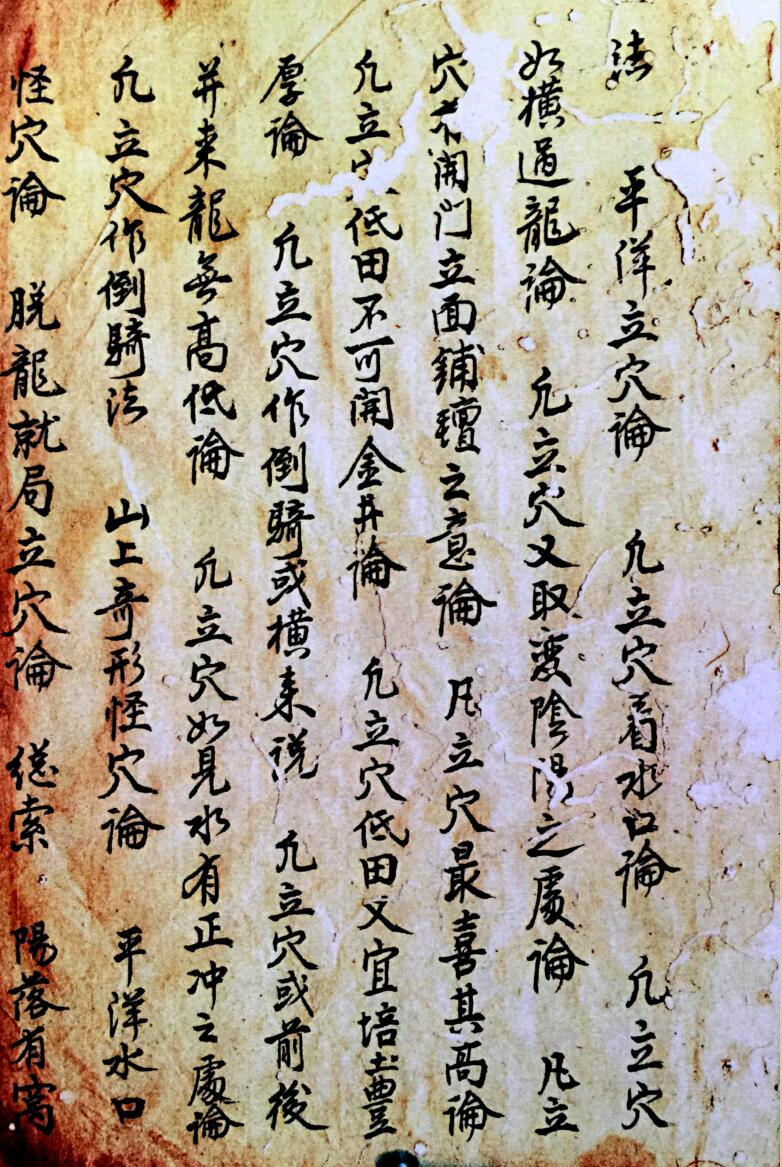 法 平洋立穴論 凢立穴看水口論 凢立穴
如橫過龍論 凢立穴又取变陰陽之處論 凡立
穴不開门立面鋪氊之意論 凡立穴最喜其高論
凢立穴低田不可開金井論 凢立穴低田又宜培土豊
厚論 凢立穴作倒騎或橫來説 凢立穴或前後
并来龍無高低論 凢立穴如見水有正冲之處論
凢立穴作倒騎法 山上奇形怪穴論 平洋水口
怪穴論 脱龍就局立穴論 总索 陽落有窩